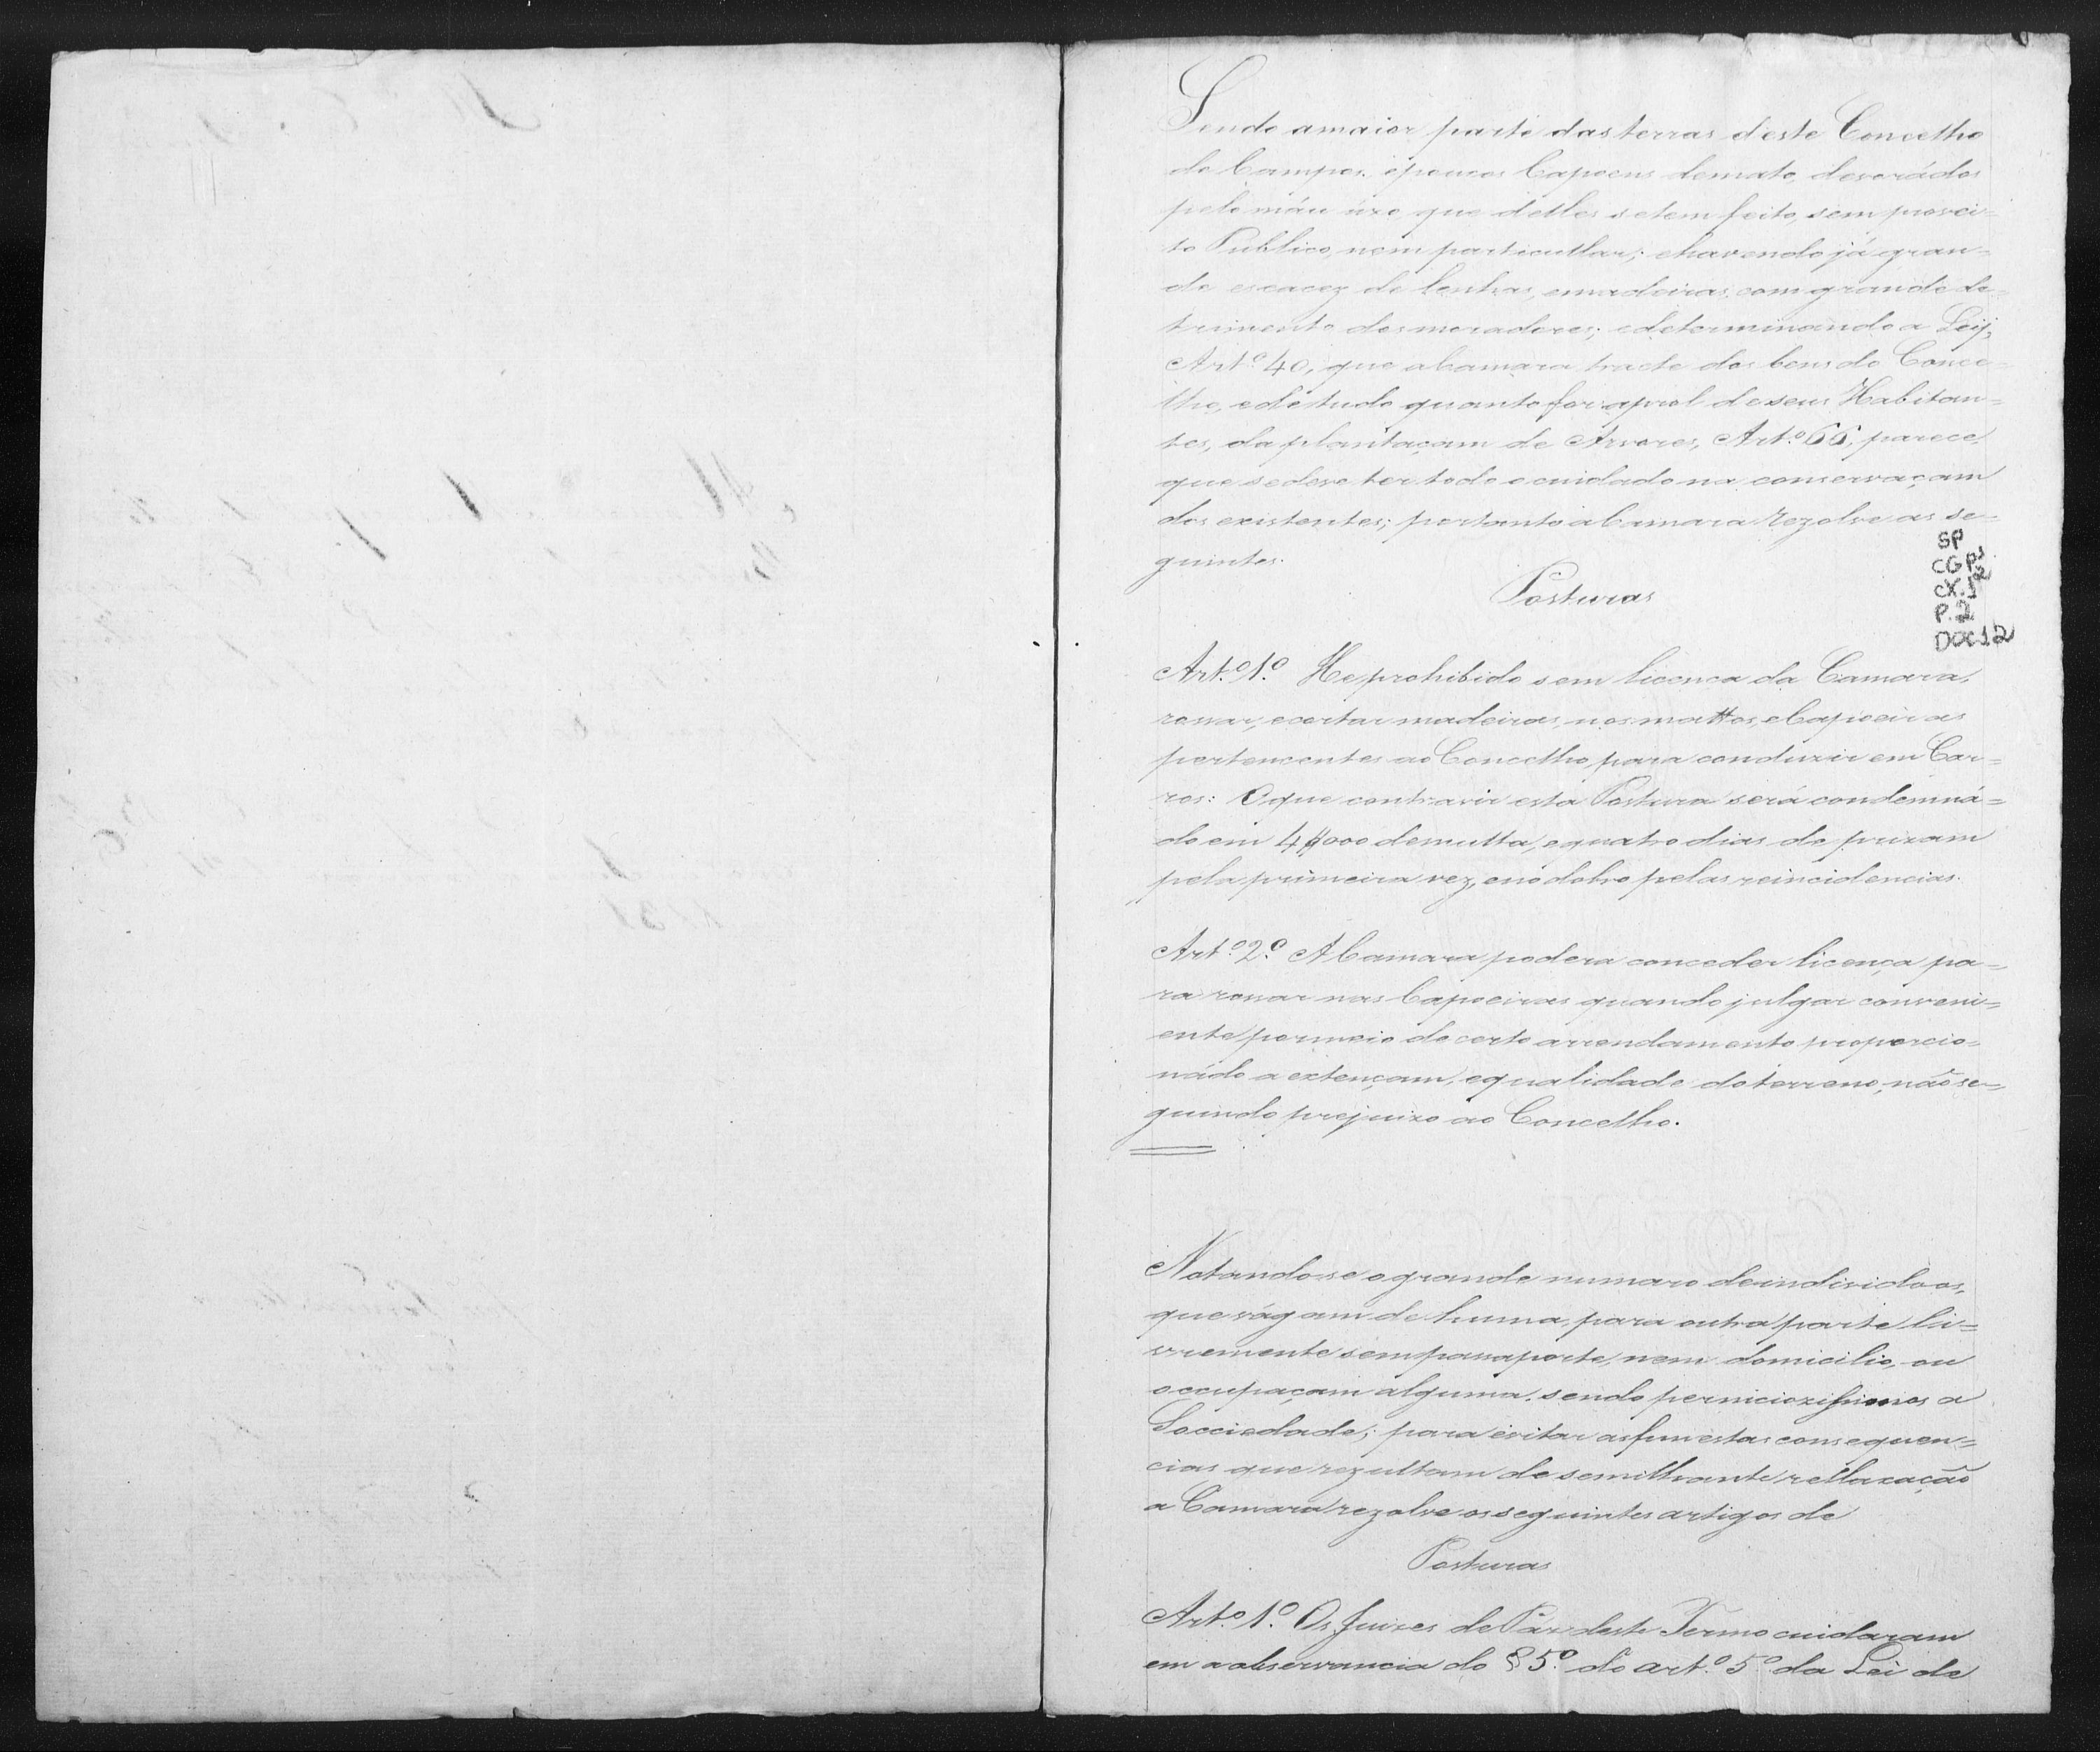 Sendo a maior parte das terras d'este Concelho
de Campos, e poucos Capoens de mato, devorádos
pelo máu uzo que delles se tem feito, sem provei-
to Publico, nem particullar; e havendo já gran-
de escacez de lenhas, e madeiras, com grande de-
trimento dos moradores; e determinando a Ley,
Artº 40, que a Camara tracte dos bens do Conce-
lho, e de tudo quanto for a prol de seus Habitan-
tes, da plantaçam de Arvores, Artº 66, parece,
que se deve ter todo o cuidado na conservaçam
dos existentes; portanto a Camara rezolve as se-
guintes.
SP
CGP1
CX.12
P.2
DOC12
Posturas
Artº 1º He prohibido sem licença da Camara,
rossar, e cortar madeiras, nos mattos, e Capoeiras
pertencentes ao Concelho, para conduzir em Car=
ros: O que contravir esta Postura será condemná=
do em 4$000 de multa, e quatro dias de prizam
pela primeira vez, e no dobro pelas reincidencias.
Artº 2º A Camara podera conceder licença pa-
ra rossar nas Capoeiras quando julgar conveni=
ente por meio de certo arrendamento proporcio-
nádo a extençam, e qualidade do terreno, não se=
guindo prejuizo ao Concelho.
Notando-se o grande numaro de individoos,
que vágam de huma, para outra parte li=
vremente sem passaporte, nem domicilio, ou
occupaçam alguma, sendo perniciozissimos a
Socciedade; para evitar as funestas consequen=
cias que rezultam de semilhante rellaxação
a Camara rezolve os seguintes artigos de
Posturas
Artº 1º Os Juizes de Páz deste Termo cuidaram
em a observancia do § 5º do artº 5º da Lei de